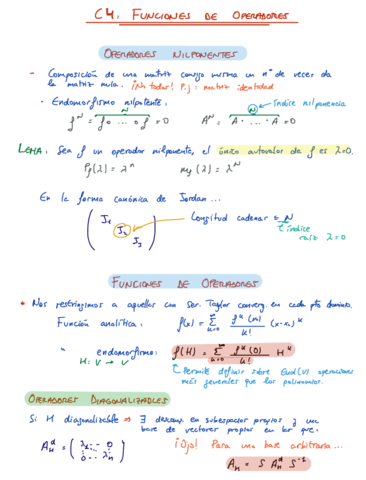 C4: FUNCIONES DE OPERADORES
OPERADORES NILPOTENTES
- Composición de una matriz consigo misma un nº de veces da
la matriz nula. ¡No todas! P.ej = matriz identidad
· Endomorfismo nilpotente:
índice nilpotencia
f^N = f∘...∘f = 0 A^N = A·...·A = 0
LEMA: Sea f un operador nilpotente, el único autovalor de f es λ=0.
P_f(λ) = λ^n m_f(λ) = λ^N
En la forma canónica de Jordan ...
(J_1 J_2 J_3) Longitud cadenas = N
índice
raíz λ=0
FUNCIONES DE OPERADORES
* Nos restringimos a aquellas con Ser. Taylor converg. en cada pto dominio.
Función analítica: f(x) = Σ_{k=0}^∞ f^k(x_0)/k! (x-x_0)^k
" endomorfismo: f(H) = Σ_{k=0}^∞ f^k(0)/k! H^k
H: V → V
Permite definir sobre End(V) operaciones
más generales que los polinomios.
OPERADORES DIAGONALIZABLES
Si H diagonalizable ⇒ ∃ descomp en subespacios propios y una
base de vectores propios en la que:
A_H^d = (λ_1 ... 0 ⋮ ⋮ 0 ... λ_n) ¡Ojo! Para una base arbitraria...
A_H = S A_H^d S^-1